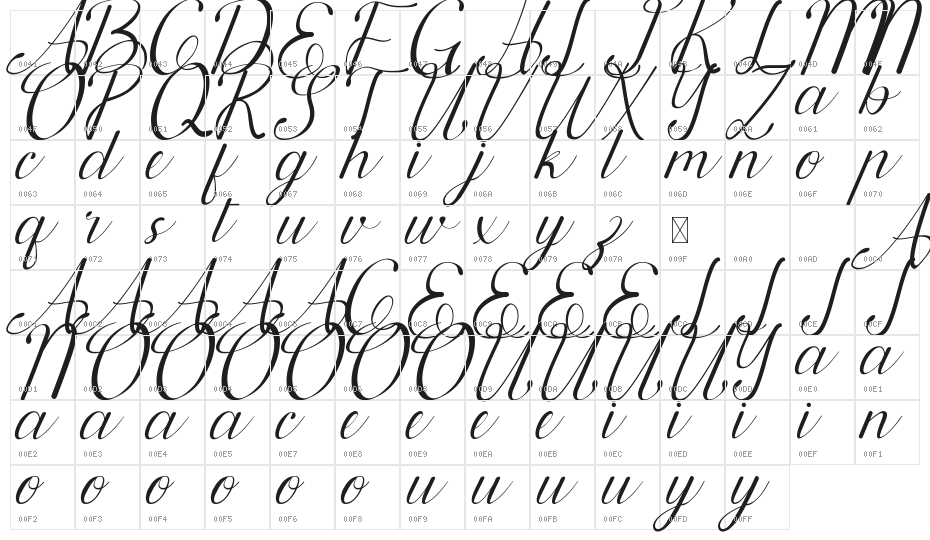 A B C D E F G H I J K L M N
0041 0042 0043 0044 0045 0046 0047 0048 0049 004A 004B 004C 004D 004E
O P Q R S T U V W X Y Z a b
004F 0050 0051 0052 0053 0054 0055 0056 0057 0058 0059 005A 0061 0062
c d e f g h i j k l m n o p
0063 0064 0065 0066 0067 0068 0069 006A 006B 006C 006D 006E 006F 0070
q r s t u v w x y z
0071 0072 0073 0074 0075 0076 0077 0078 0079 007A 009F 00A0 00AD 00C0
A A A A A C E E E E I I I I
00C1 00C2 00C3 00C4 00C5 00C7 00C8 00C9 00CA 00CB 00CC 00CD 00CE 00CF
N O O O O O O U U U U Y a a
00D1 00D2 00D3 00D4 00D5 00D6 00D8 00D9 00DA 00DB 00DC 00DD 00E0 00E1
a a a a c e e e e i i i i n
00E2 00E3 00E4 00E5 00E7 00E8 00E9 00EA 00EB 00EC 00ED 00EE 00EF 00F1
o o o o o o u u u u y y
00F2 00F3 00F4 00F5 00F6 00F8 00F9 00FA 00FB 00FC 00FD 00FF